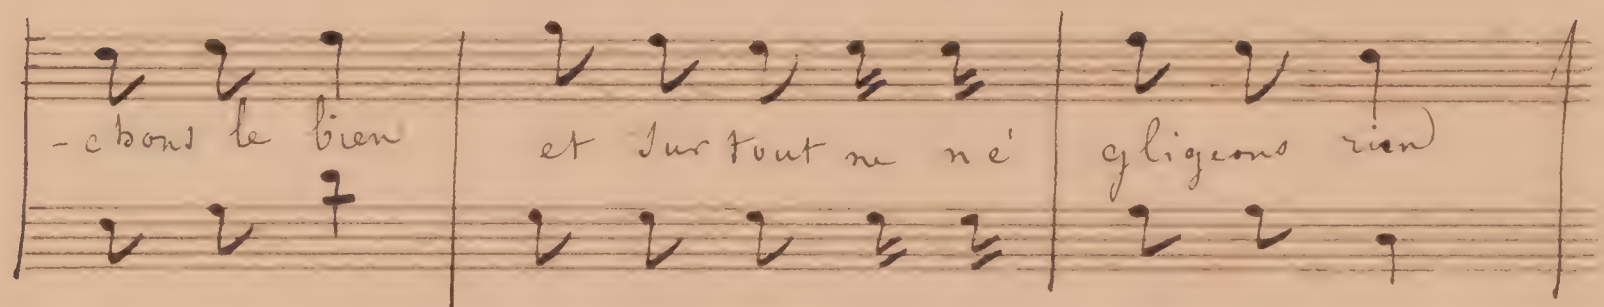 -chons le bien et surtout ne né gligeons rien